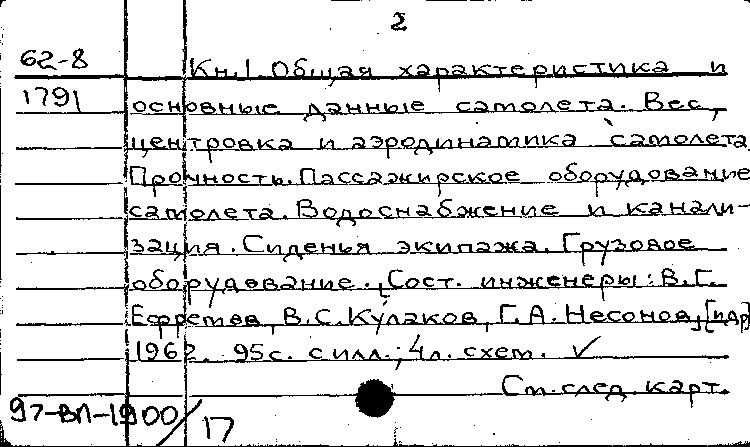 2
62-8 Кн.1. Общая характеристика и
1791 основные данные самолета. Вес,
центровка и аэродинамика самолета
Прочность. Пассажирское оборудование
самолета. Водоснабжение и канали-
зация. Сиденья экипажа. Грузовое
оборудование. Сост. инженеры: В.Г.
Ефремов, В.С. Кулаков, Г.А. Несонов, [и др]
1962. 95 с. с илл.; 4 л. схем. ✓
См. след. карт.
97-ВЛ-1900/17